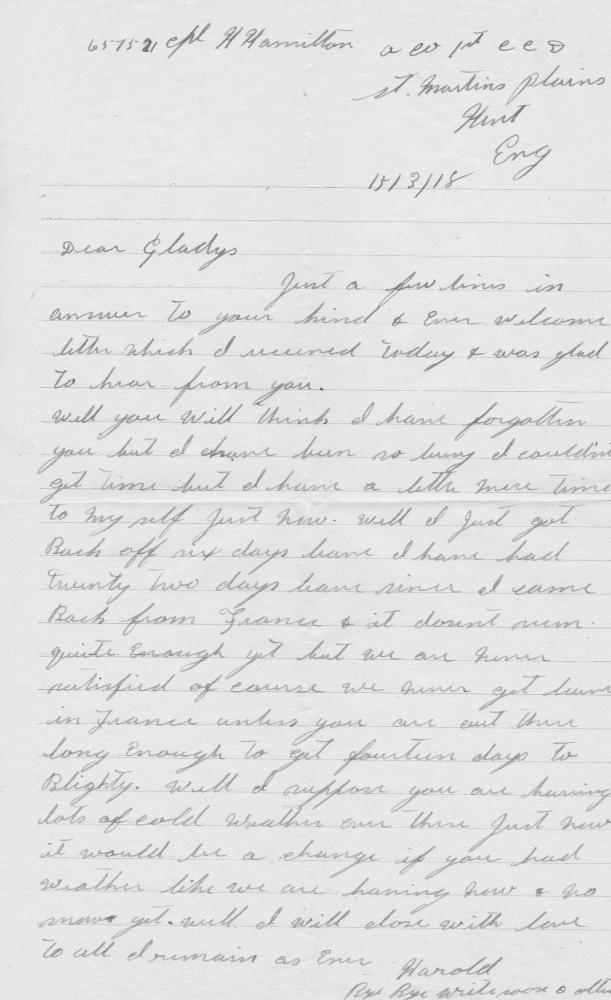 657521 Cpl H Hamilton a co 1st C C D
St. Martins Plains
Kent
Eng
15/3/18
Dear Gladys
Just a few lines in
answer to your kind & Ever welcome
letter which I received Today & was glad
To hear from you.
Well you will think I have forgotten
you but I have been so busy I couldn't
get time but I have a little more time
to my self just now. Well I just got
Back off six days leave I have had
Twenty two days leave since I came
Back from France & it dosent seem
quite Enough yet but we are never
satisfied of course we never get leave
in France unless you are out there
long Enough to get fourteen days to
Blighty. Well I suppose you are having
lots of cold weather over there just now
it would be a change if you had
weather like we are having now & no
snow yet. Well I will close with love
To all I remain as Ever
Harold
Bye Bye write soon &